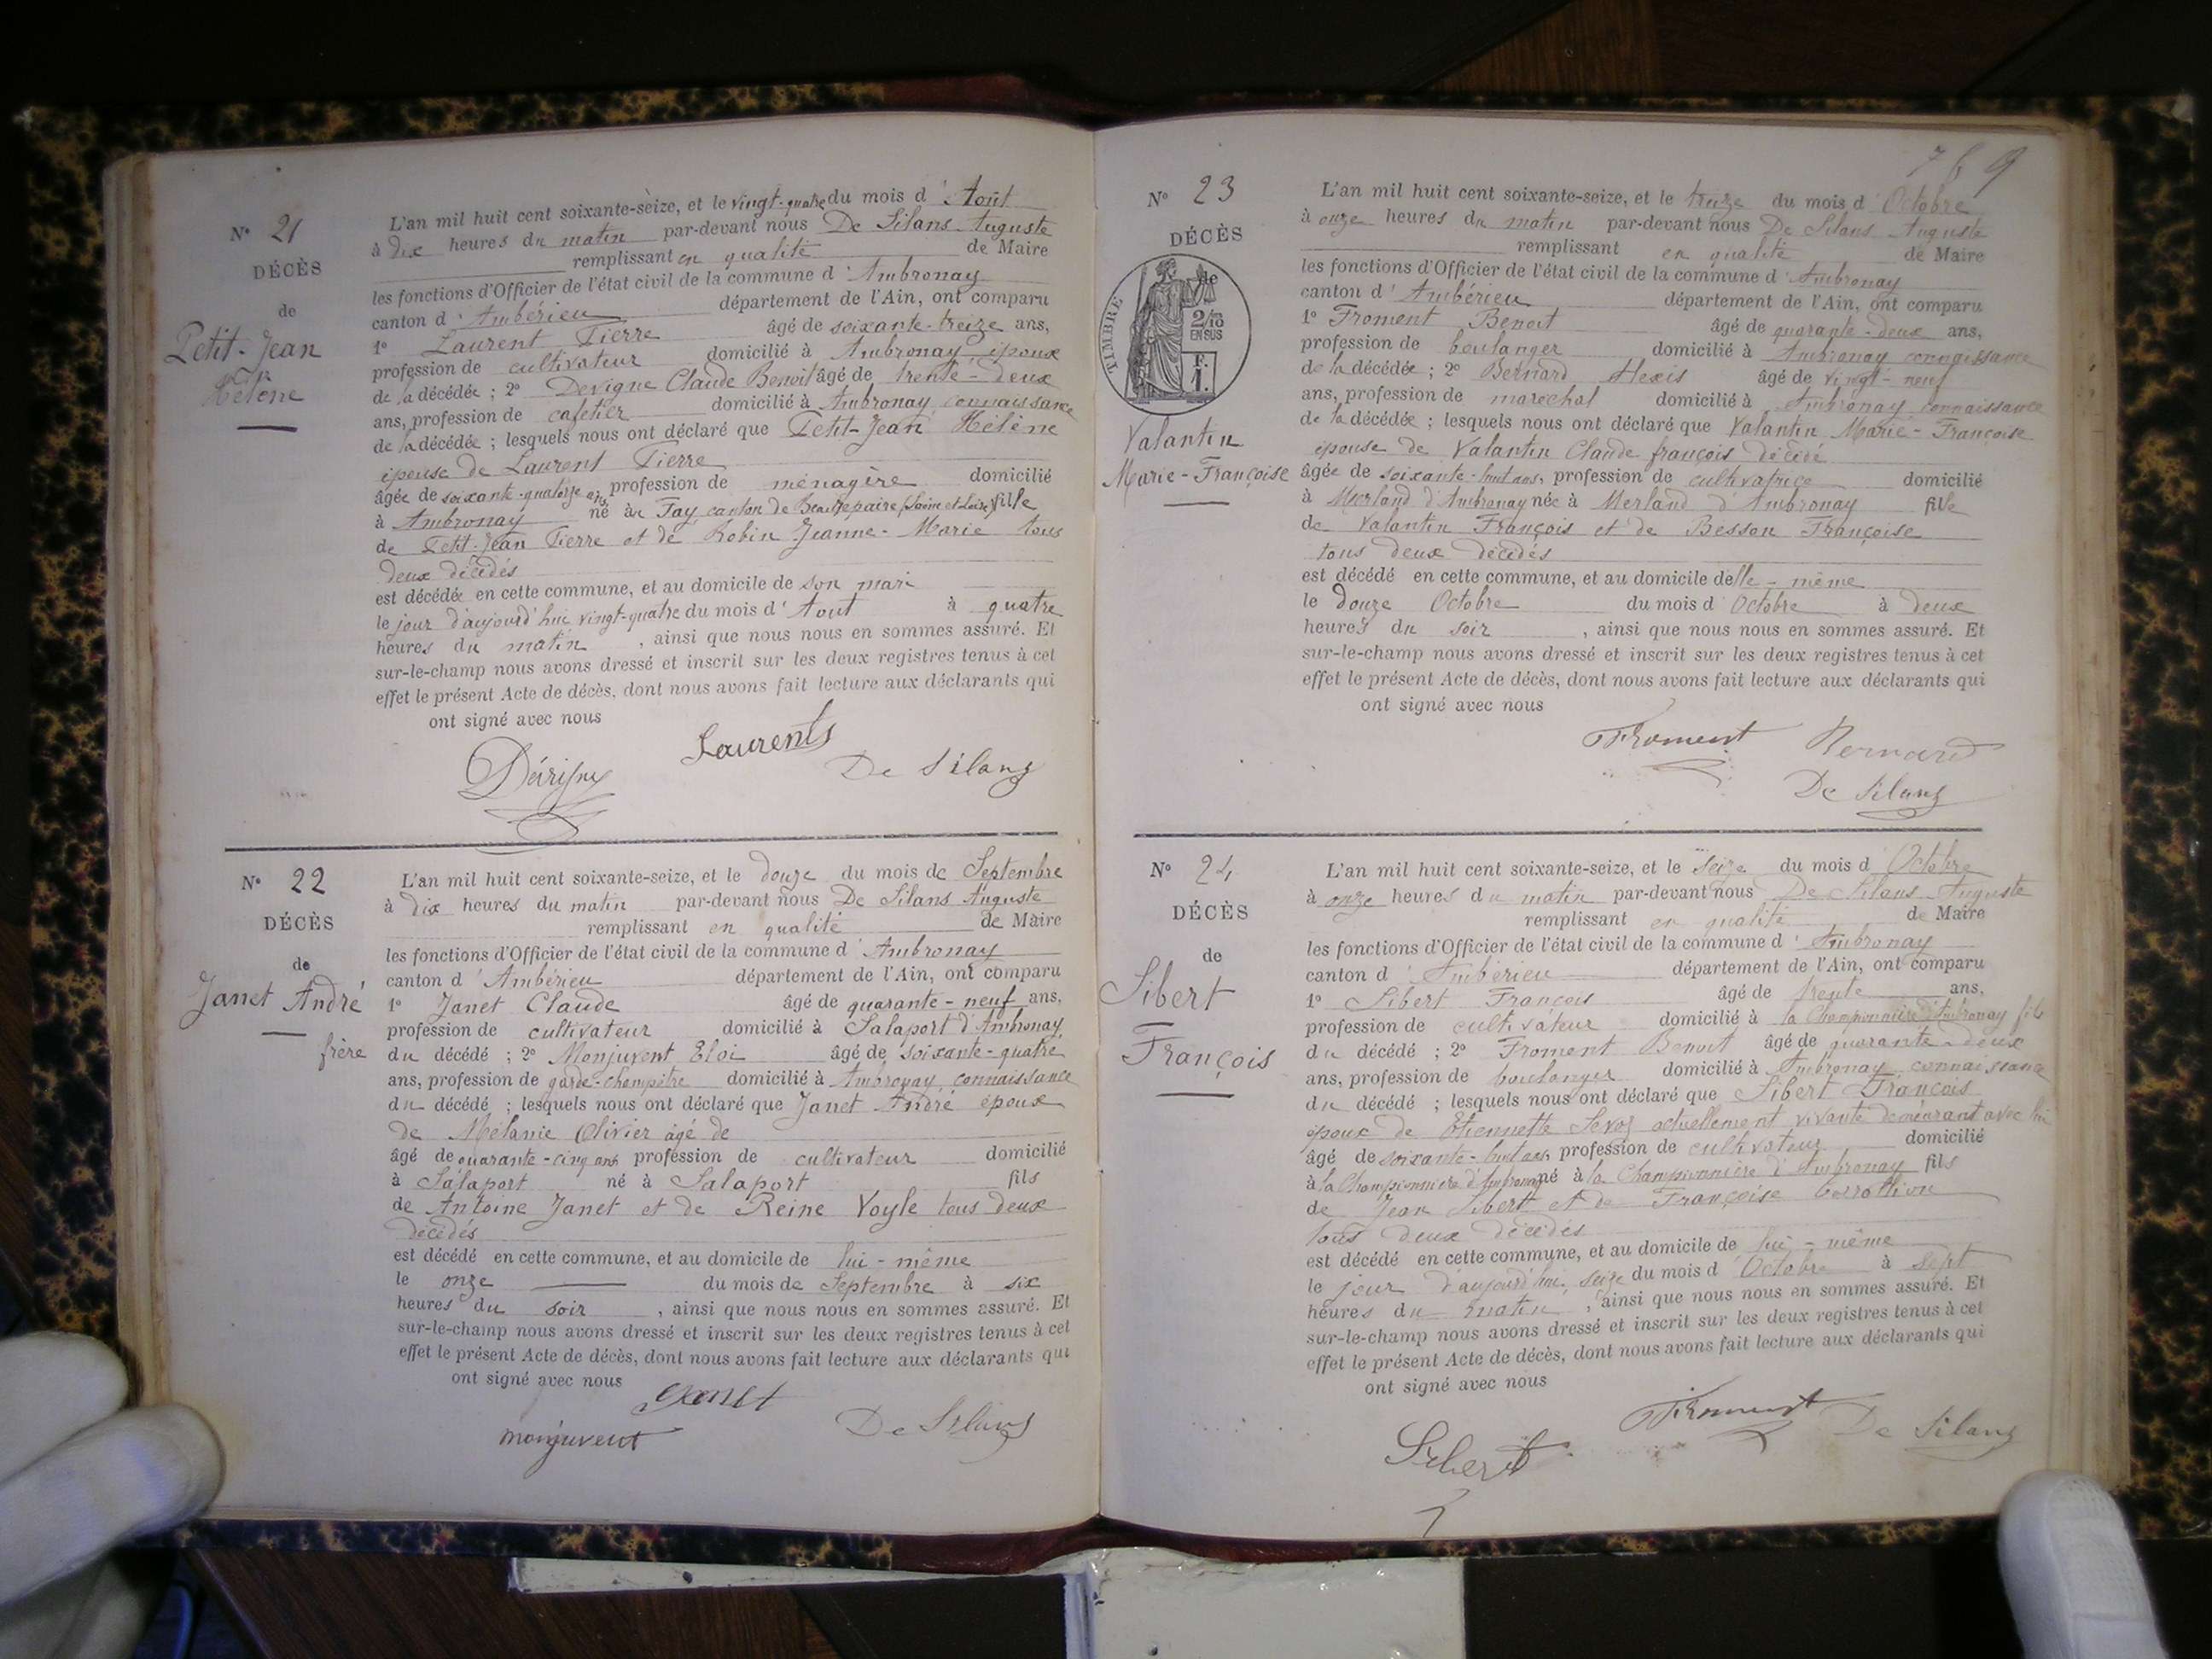 N° 21
DÉCÈS
de
Petit-Jean
Hélène
L'an mil huit cent soixante-seize, et le vingt-quatre du mois d'Août
à dix heures du matin par-devant nous De Silans Auguste
remplissant en qualité de Maire
les fonctions d'Officier de l'état civil de la commune d'Ambronay
canton d'Ambérieu département de l'Ain, ont comparu
1° Laurent Pierre âgé de soixante-treize ans,
profession de cultivateur domicilié à Ambronay époux
de la décédée ; 2° Devigne Claude Benoit âgé de trente-deux
ans, profession de cafetier domicilié à Ambronay, connaissance
de la décédée ; lesquels nous ont déclaré que Petit-Jean Hélène
épouse de Laurent Pierre
âgée de soixante-quatorze ans profession de ménagère domicilié
à Ambronay né à Fay, canton de Beaurepaire (Saône et Loire) fille
de Petit-Jean Pierre et de Robin Jeanne-Marie tous
deux décédés
est décédée en cette commune, et au domicile de son mari
le jour d'aujourd'hui vingt-quatre du mois d'Aout à quatre
heures du matin, ainsi que nous nous en sommes assuré. Et
sur-le-champ nous avons dressé et inscrit sur les deux registres tenus à cet
effet le présent Acte de décès, dont nous avons fait lecture aux déclarants qui
ont signé avec nous
Laurents
De Silans
N° 22
DÉCÈS
de
Janet André
frère
L'an mil huit cent soixante-seize, et le douze du mois de Septembre
à dix heures du matin par-devant nous De Silans Auguste
remplissant en qualité de Maire
les fonctions d'Officier de l'état civil de la commune d'Ambronay
canton d'Ambérieu département de l'Ain, ont comparu
1° Janet Claude âgé de quarante-neuf ans,
profession de cultivateur domicilié à Salaport d'Ambronay,
du décédé ; 2° Monjuvent Eloi âgé de soixante-quatre
ans, profession de garde-champêtre domicilié à Ambronay, connaissance
du décédé ; lesquels nous ont déclaré que Janet André époux
de Mélanie Olivier âgé de
âgé de quarante-cinq ans profession de cultivateur domicilié
à Salaport né à Salaport fils
de Antoine Janet et de Reine Voyle tous deux
décédés
est décédé en cette commune, et au domicile de lui-même
le onze du mois de Septembre à six
heures du soir, ainsi que nous nous en sommes assuré. Et
sur-le-champ nous avons dressé et inscrit sur les deux registres tenus à cet
effet le présent Acte de décès, dont nous avons fait lecture aux déclarants qui
ont signé avec nous
Janet
monjuvent
De Silans
769
N° 23
DÉCÈS
de
TIMBRE
2/10
EN SUS
F.
1.
Valantin
Marie-Françoise
L'an mil huit cent soixante-seize, et le treize du mois d'Octobre
à onze heures du matin par-devant nous De Silans Auguste
remplissant en qualité de Maire
les fonctions d'Officier de l'état civil de la commune d'Ambronay
canton d'Ambérieu département de l'Ain, ont comparu
1° Froment Benoit âgé de quarante-deux ans,
profession de boulanger domicilié à Ambronay connaissance
de la décédée ; 2° Bernard Alexis âgé de vingt-neuf
ans, profession de maréchal domicilié à Ambronay connaissance
de la décédée ; lesquels nous ont déclaré que Valantin Marie-Françoise
épouse de Valantin Claude françois décédé
âgée de soixante-huit ans, profession de cultivatrice domicilié
à Merland d'Ambronay née à Merland d'Ambronay fille
de Valantin François et de Besson Françoise
tous deux décédés
est décédé en cette commune, et au domicile d'elle-même
le douze Octobre du mois d'Octobre à deux
heures du soir, ainsi que nous nous en sommes assuré. Et
sur-le-champ nous avons dressé et inscrit sur les deux registres tenus à cet
effet le présent Acte de décès, dont nous avons fait lecture aux déclarants qui
ont signé avec nous
Froment Bernard
De Silans
N° 24
DÉCÈS
de
Sibert
François
L'an mil huit cent soixante-seize, et le seize du mois d'Octobre
à onze heures du matin par-devant nous De Silans Auguste
remplissant en qualité de Maire
les fonctions d'Officier de l'état civil de la commune d'Ambronay
canton d'Ambérieu département de l'Ain, ont comparu
1° Sibert François âgé de trente ans,
profession de cultivateur domicilié à la Championnière d'Ambronay fils
du décédé ; 2° Froment Benoit âgé de quarante-deux
ans, profession de boulanger domicilié à Ambronay, connaissance
du décédé ; lesquels nous ont déclaré que Sibert François
époux de Etiennette actuellement vivante demeurant avec lui
âgé de soixante-huit ans, profession de cultivateur domicilié
à la Championnière d'Ambronay né à la Championnière d'Ambronay fils
de Jean Sibert et de Françoise
tous deux décédés
est décédé en cette commune, et au domicile de lui-même
le jour d'aujourd'hui, seize du mois d'Octobre à sept
heures du matin, ainsi que nous nous en sommes assuré. Et
sur-le-champ nous avons dressé et inscrit sur les deux registres tenus à cet
effet le présent Acte de décès, dont nous avons fait lecture aux déclarants qui
ont signé avec nous
Froment
De Silans
Sibert